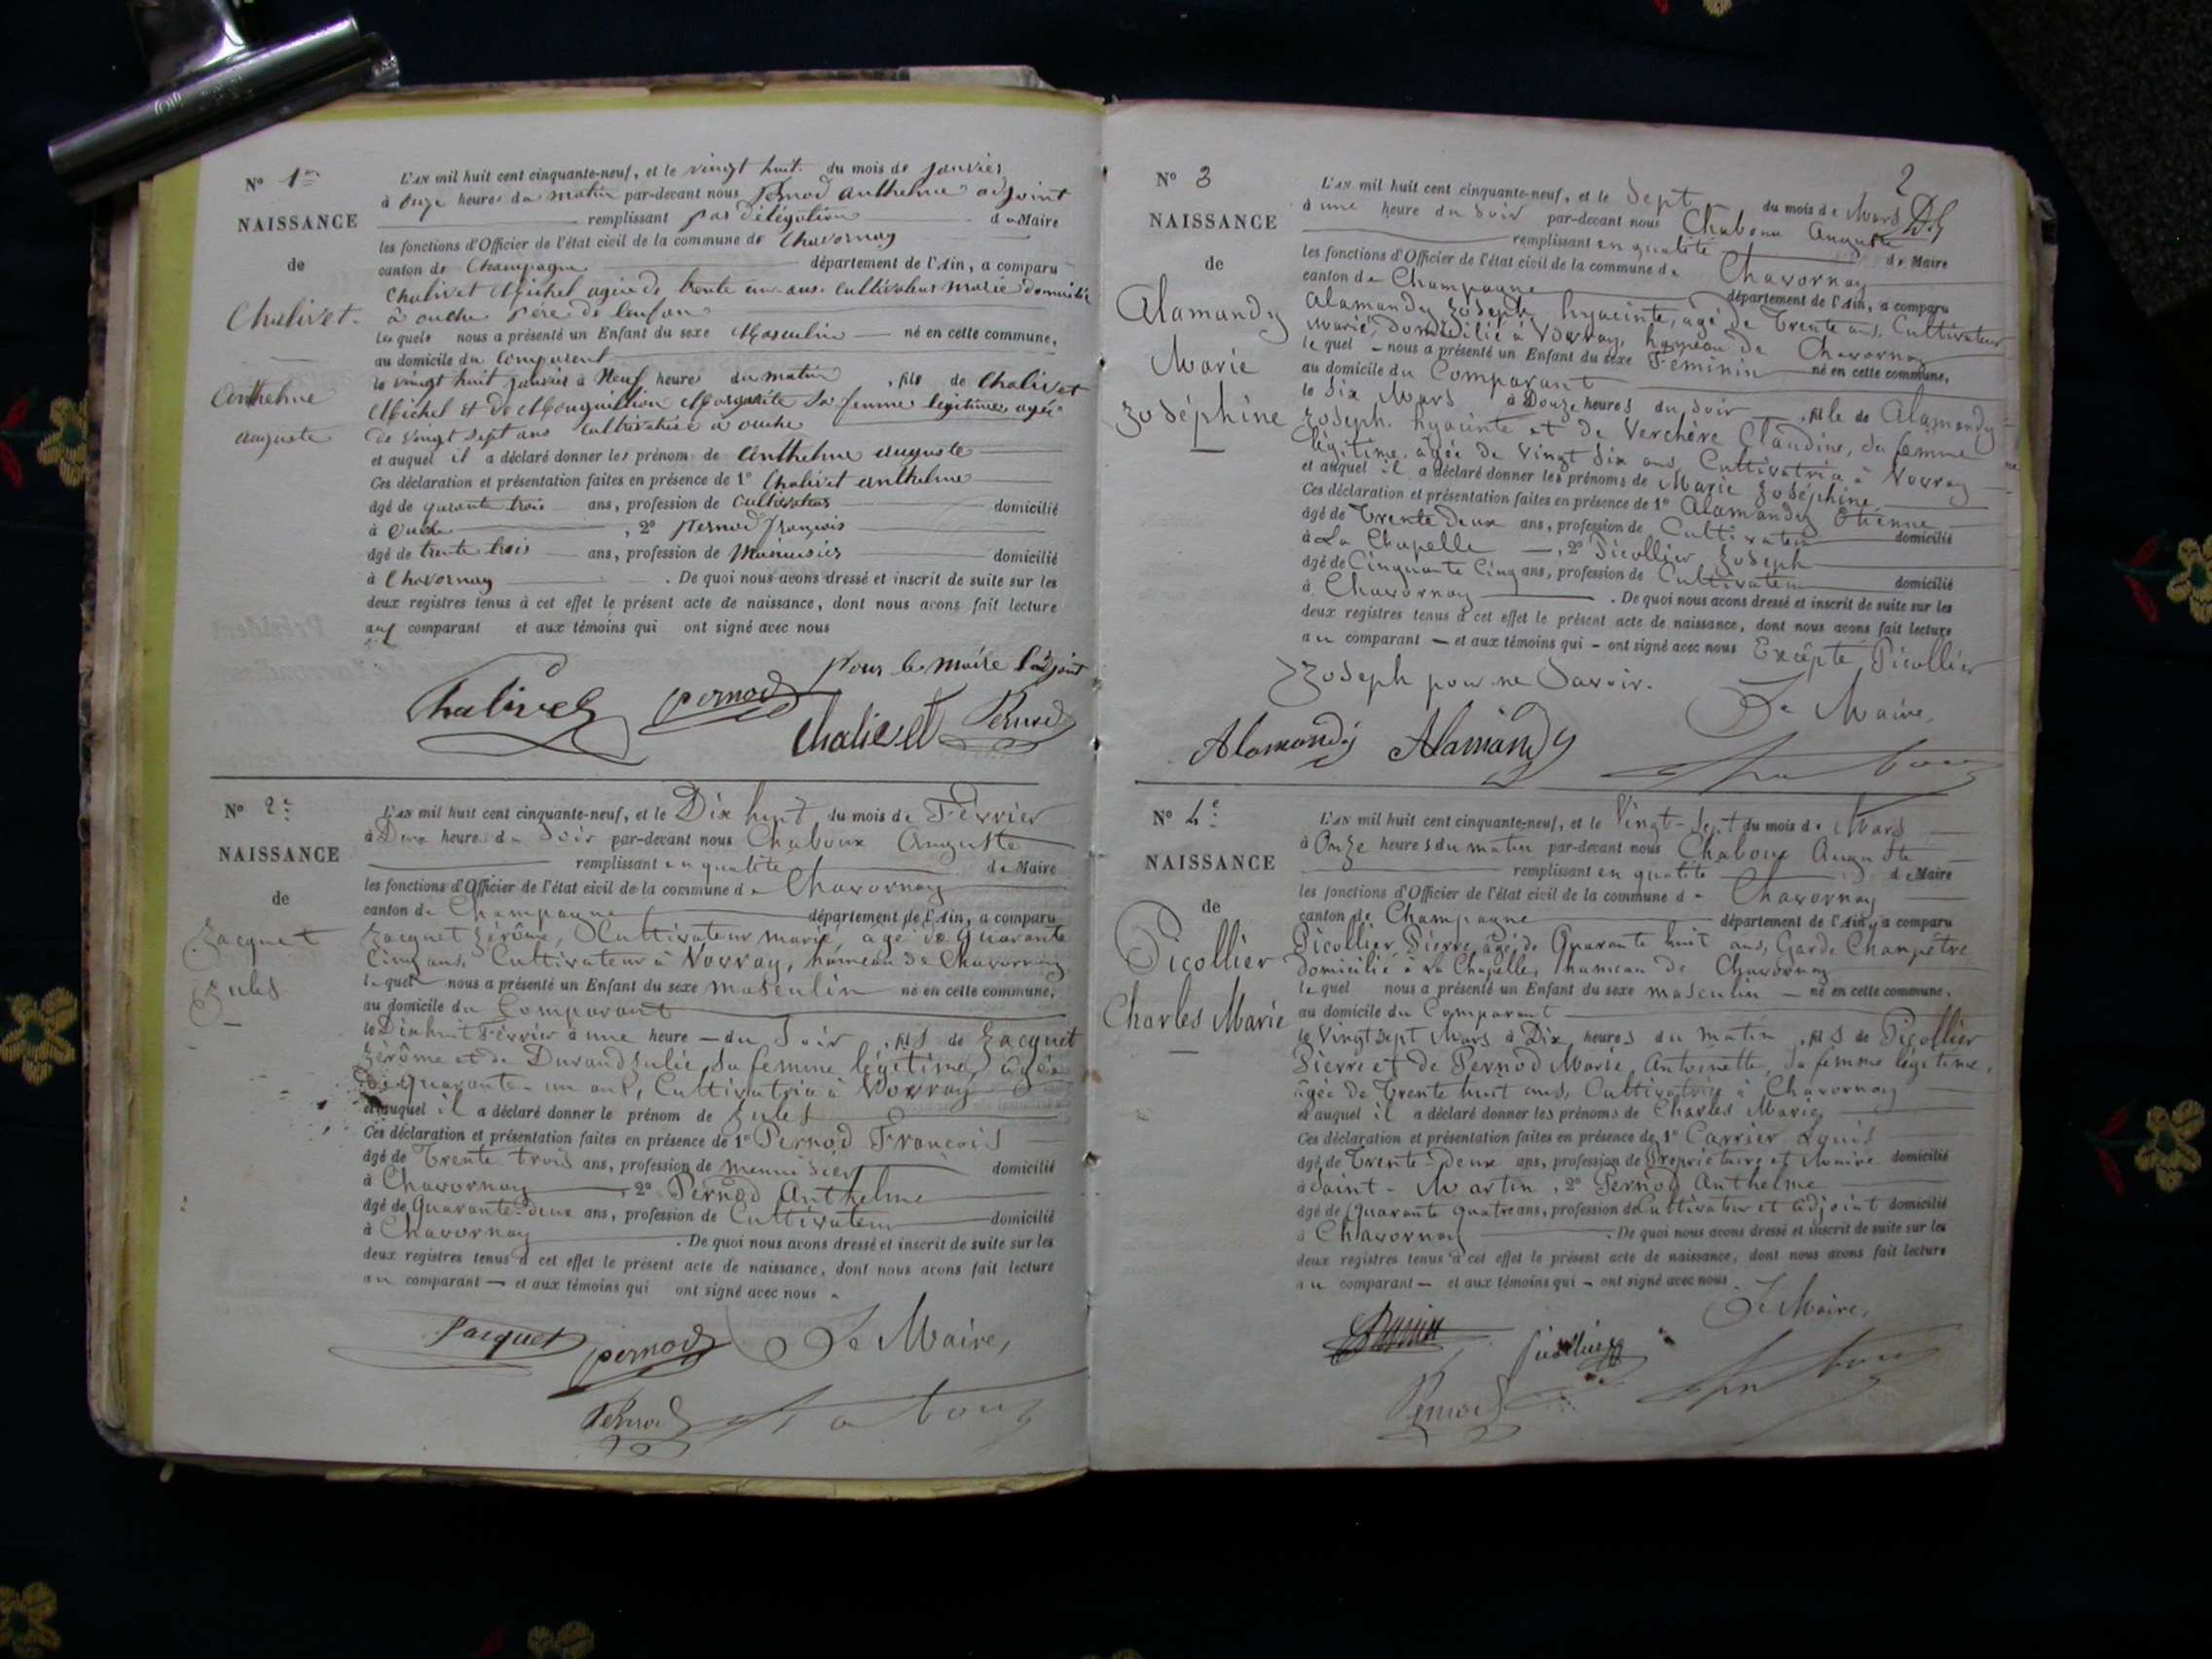 N° 1er
NAISSANCE
de
Chalivet
Anthelme
auguste
L'AN mil huit cent cinquante-neuf, et le vingt huit du mois de janvier
à onze heures du matin par-devant nous pernod anthelme adjoint
remplissant par délégation du Maire
les fonctions d'Officier de l'état civil de la commune de Chavornay
canton de Champagne département de l'Ain, a comparu
Chalivet Michel agée de trente un ans cultivateur marié domicilié
à ouche père de lenfan
lequel nous a présenté un Enfant du sexe Masculin né en cette commune,
au domicile du Comparent
le vingt huit janvier à Neuf heures du matin, fils de Chalivet
Michel et de Marguerite Sa femme légitime agée
de vingt sept ans cultivatrice à ouche
et auquel il a déclaré donner les prénom de Anthelme auguste
Ces déclaration et présentation faites en présence de 1° Chalivet anthelme
âgé de quarante trois ans, profession de Cultivateur domicilié
à ouche, 2° pernod françois
âgé de trente trois ans, profession de Menuisier domicilié
à Chavornay. De quoi nous avons dressé et inscrit de suite sur les
deux registres tenus à cet effet le présent acte de naissance, dont nous avons fait lecture
aux comparant et aux témoins qui ont signé avec nous
pour le maire l'adjoint
Chalivet pernod
Chalivet Pernod
N° 2e
NAISSANCE
de
Jacquet
Jules
L'AN mil huit cent cinquante-neuf, et le Dix huit du mois de Février
à Deux heure du Soir par-devant nous Chaboux Auguste
remplissant en qualité de Maire
les fonctions d'Officier de l'état civil de la commune de Chavornay
canton de Champagne département de l'Ain, a comparu
Jacquet Jérôme, Cultivateur marié, âgé de Quarante
Cinq ans, Cultivateur à Vovray, hameau de Chavornay
lequel nous a présenté un Enfant du sexe masculin né en cette commune,
au domicile du Comparant
le Dix huit Février à une heure du Soir, fils de Jacquet
Jérôme et de Durand Julie, Sa femme légitime, âgée
de Quarante-un ans, Cultivatrice à Vovray
et auquel il a déclaré donner le prénom de Jules
Ces déclaration et présentation faites en présence de 1° Pernod François
âgé de Trente trois ans, profession de menuisier domicilié
à Chavornay, 2° Pernod Anthelme
âgé de Quarante-deux ans, profession de Cultivateur domicilié
à Chavornay. De quoi nous avons dressé et inscrit de suite sur les
deux registres tenus à cet effet le présent acte de naissance, dont nous avons fait lecture
au comparant et aux témoins qui ont signé avec nous
Jacquet pernod Le Maire,
Pernod Chaboux
2
N° 3
NAISSANCE
de
Alamandy
Marie
Joséphine
L'AN mil huit cent cinquante-neuf, et le Sept du mois de Mars
à une heure du Soir par-devant nous Chaboux Auguste
remplissant en qualité de Maire
les fonctions d'Officier de l'état civil de la commune de Chavornay
canton de Champagne département de l'Ain, a comparu
Alamandy Joseph hyacinte, âgé de Trente ans, Cultivateur
Marié, Domicilié à Vovray, hameau de Chavornay
lequel nous a présenté un Enfant du sexe Féminin né en cette commune,
au domicile du Comparant
le Six Mars à Douze heures du Soir, fille de Alamandy
Joseph hyacinte et de Verchère Claudine, Sa femme
légitime, âgée de Vingt Six ans, Cultivatrice à Vovray
et auquel il a déclaré donner les prénoms de Marie Joséphine
Ces déclaration et présentation faites en présence de 1° Alamandy Etienne
âgé de Trente Deux ans, profession de Cultivateur domicilié
à La Chapelle, 2° Picollier Joseph
âgé de Cinquante Cinq ans, profession de Cultivateur domicilié
à Chavornay. De quoi nous avons dressé et inscrit de suite sur les
deux registres tenus à cet effet le présent acte de naissance, dont nous avons fait lecture
au comparant et aux témoins qui ont signé avec nous Excepte Picollier
Joseph pour ne Savoir.
Le Maire,
Alamandy Alamandy Chaboux
N° 4e
NAISSANCE
de
Picollier
Charles Marie
L'AN mil huit cent cinquante-neuf, et le Vingt-Sept du mois de Mars
à Onze heures du matin par-devant nous Chaboux Auguste
remplissant en qualité de Maire
les fonctions d'Officier de l'état civil de la commune de Chavornay
canton de Champagne département de l'Ain, a comparu
Picollier Pierre, âgé de Quarante huit ans, Garde Champêtre
domicilié à La Chapelle, hameau de Chavornay
lequel nous a présenté un Enfant du sexe masculin né en cette commune,
au domicile du Comparant
le Vingt Sept Mars à Dix heures du matin, fils de Picollier
Pierre et de Pernod Marie Antoinette, Sa femme légitime,
âgée de Trente huit ans, Cultivatrice à Chavornay
et auquel il a déclaré donner les prénoms de Charles Marie
Ces déclaration et présentation faites en présence de 1° Carrier Louis
âgé de Trente-Deux ans, profession de Propriétaire et Maire domicilié
à Saint-Martin, 2° Pernod Anthelme
âgé de Quarante quatre ans, profession de Cultivateur et adjoint domicilié
à Chavornay. De quoi nous avons dressé et inscrit de suite sur les
deux registres tenus à cet effet le présent acte de naissance, dont nous avons fait lecture
au comparant et aux témoins qui ont signé avec nous.
Le Maire,
Picollier
Pernod Chaboux